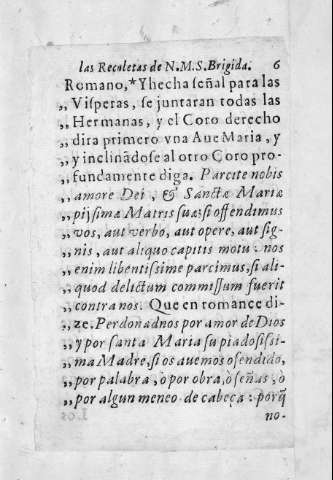 las Recoletas de N.M.S. Brigida. 6
Romano,* Y hecha señal para las
,, Visperas, se juntaran todas las
,, Hermanas, y el Coro derecho
,, dira primero vna Aue Maria, y
,, y inclinãdose al otro Coro pro-
,, fundamente diga. Parcite nobis
,, amore Dei, & Sanctæ Mariæ
,, pijsimæ Matris suæ; si offendimus
,, vos, aut verbo, aut opere, aut sig-
,, nis, aut aliquo capitis motu: nos
,, enim libentissime parcimus, si ali-
,, quod delictum commissum fuerit
,, contra nos. Que en romance di-
,, ze. Perdoñadnos por amor de Dios
,, y por santa Maria su piadosissi-
,, ma Madre, si os auemos ofendido,
,, por palabra, ò por obra, ò señas, ò
,, por algun meneo de cabeça: porq̃
no-